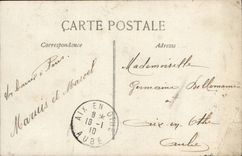 CARTE POSTALE
Correspondance
Adresse
Marius et Marcel
AIX EN OTHE
8
18-1
10
AUBE
Mademoiselle
Germaine
Aix en Othe
Aube